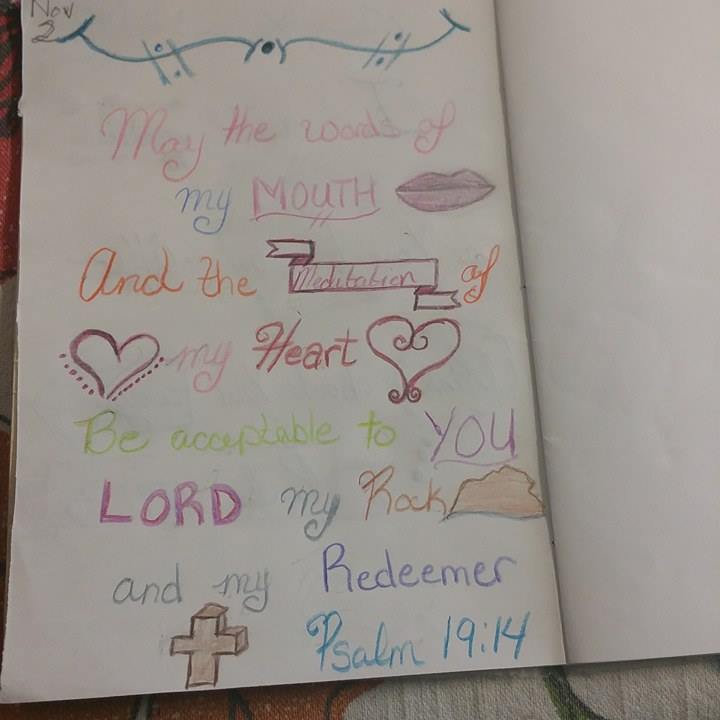 Nov
2
May the words of
my MOUTH
And the Meditation of
my Heart
Be acceptable to YOU
LORD my Rock
and my Redeemer
Psalm 19:14